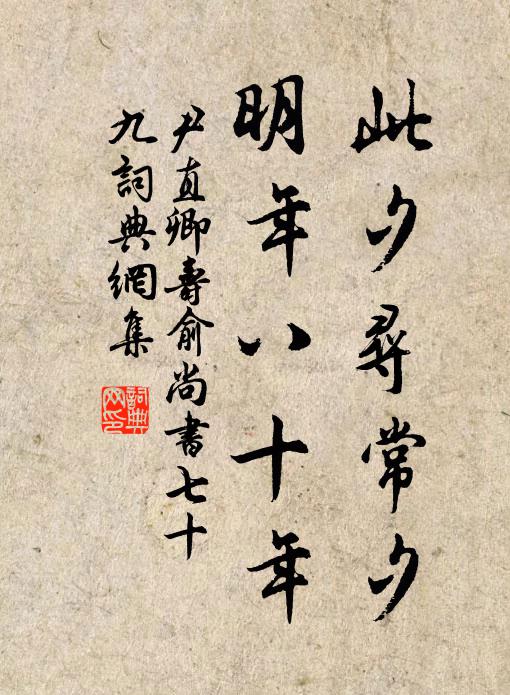 此夕尋常夕
明年八十年
尹直卿壽俞尚書七十
九詞典網集
詞典網印